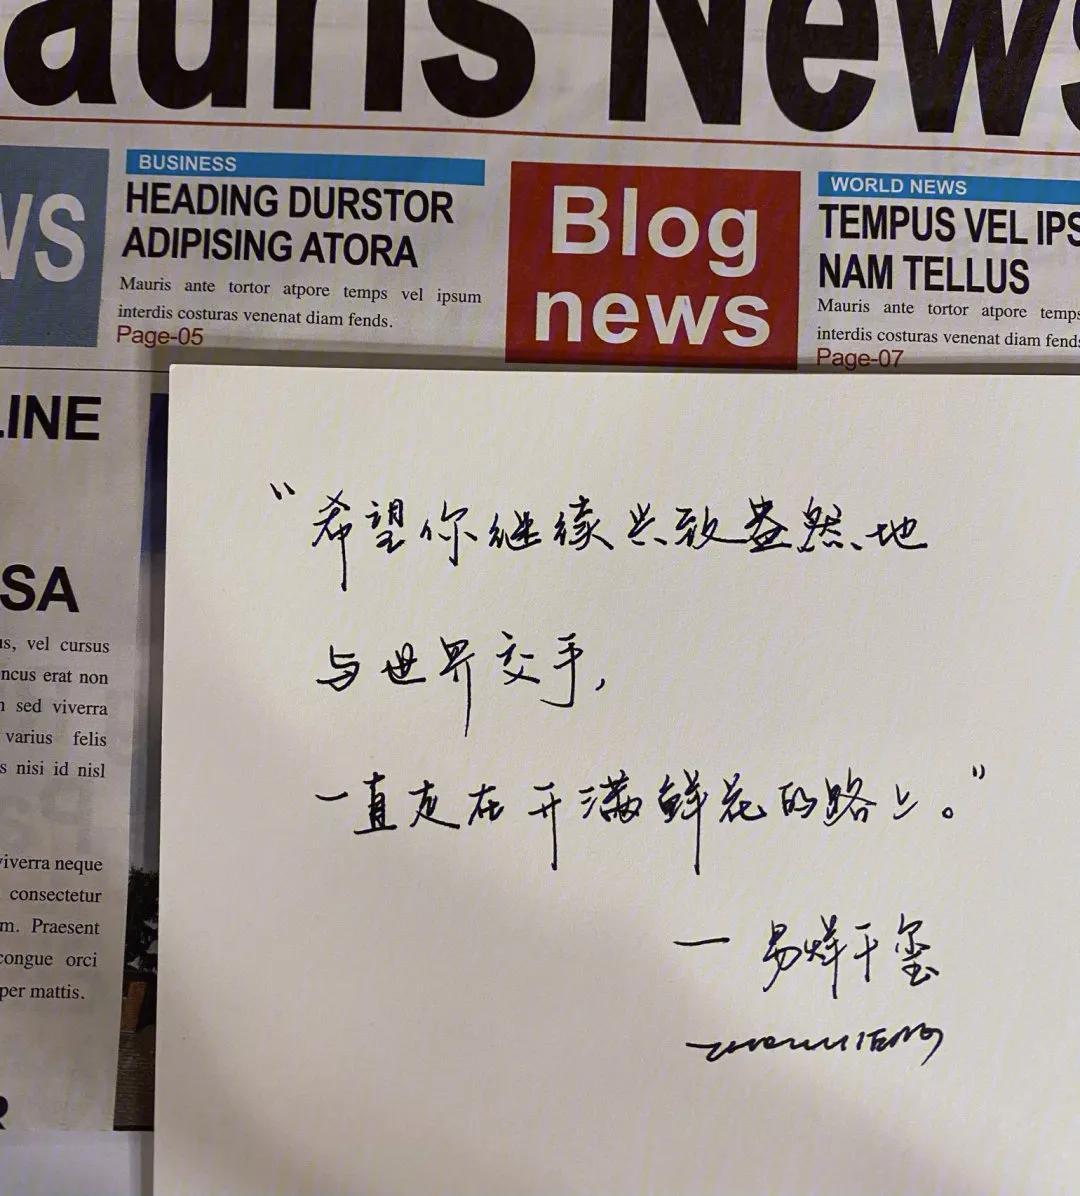 auris News
WS
BUSINESS
HEADING DURSTOR
ADIPISING ATORA
Mauris ante tortor atpore temps vel ipsum
interdis costuras venenat diam fends.
Page-05
Blog
news
WORLD NEWS
TEMPUS VEL IPS
NAM TELLUS
Mauris ante tortor atpore temps
interdis costuras venenat diam fends
Page-07
LINE
SA
us, vel cursus
ncus erat non
sed viverra
varius felis
s nisi id nisl
viverra neque
consectetur
m. Praesent
congue orci
per mattis.
R
“希望你继续兴致盎然地
与世界交手,
一直走在开满鲜花的路上。”
— 易烊千玺